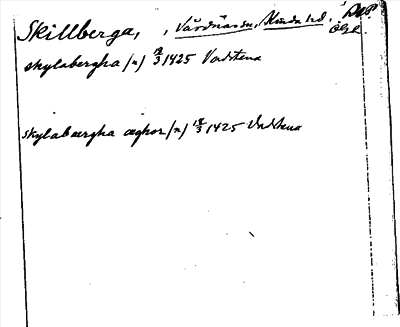 Skillberga, , Vårdnäs sn, Kinda hd, DMP.
Ögl.
skylabergha (n) 12/3 1425 Vadstena
skylabærgha æghor (n) 12/3 1425 Vadstena